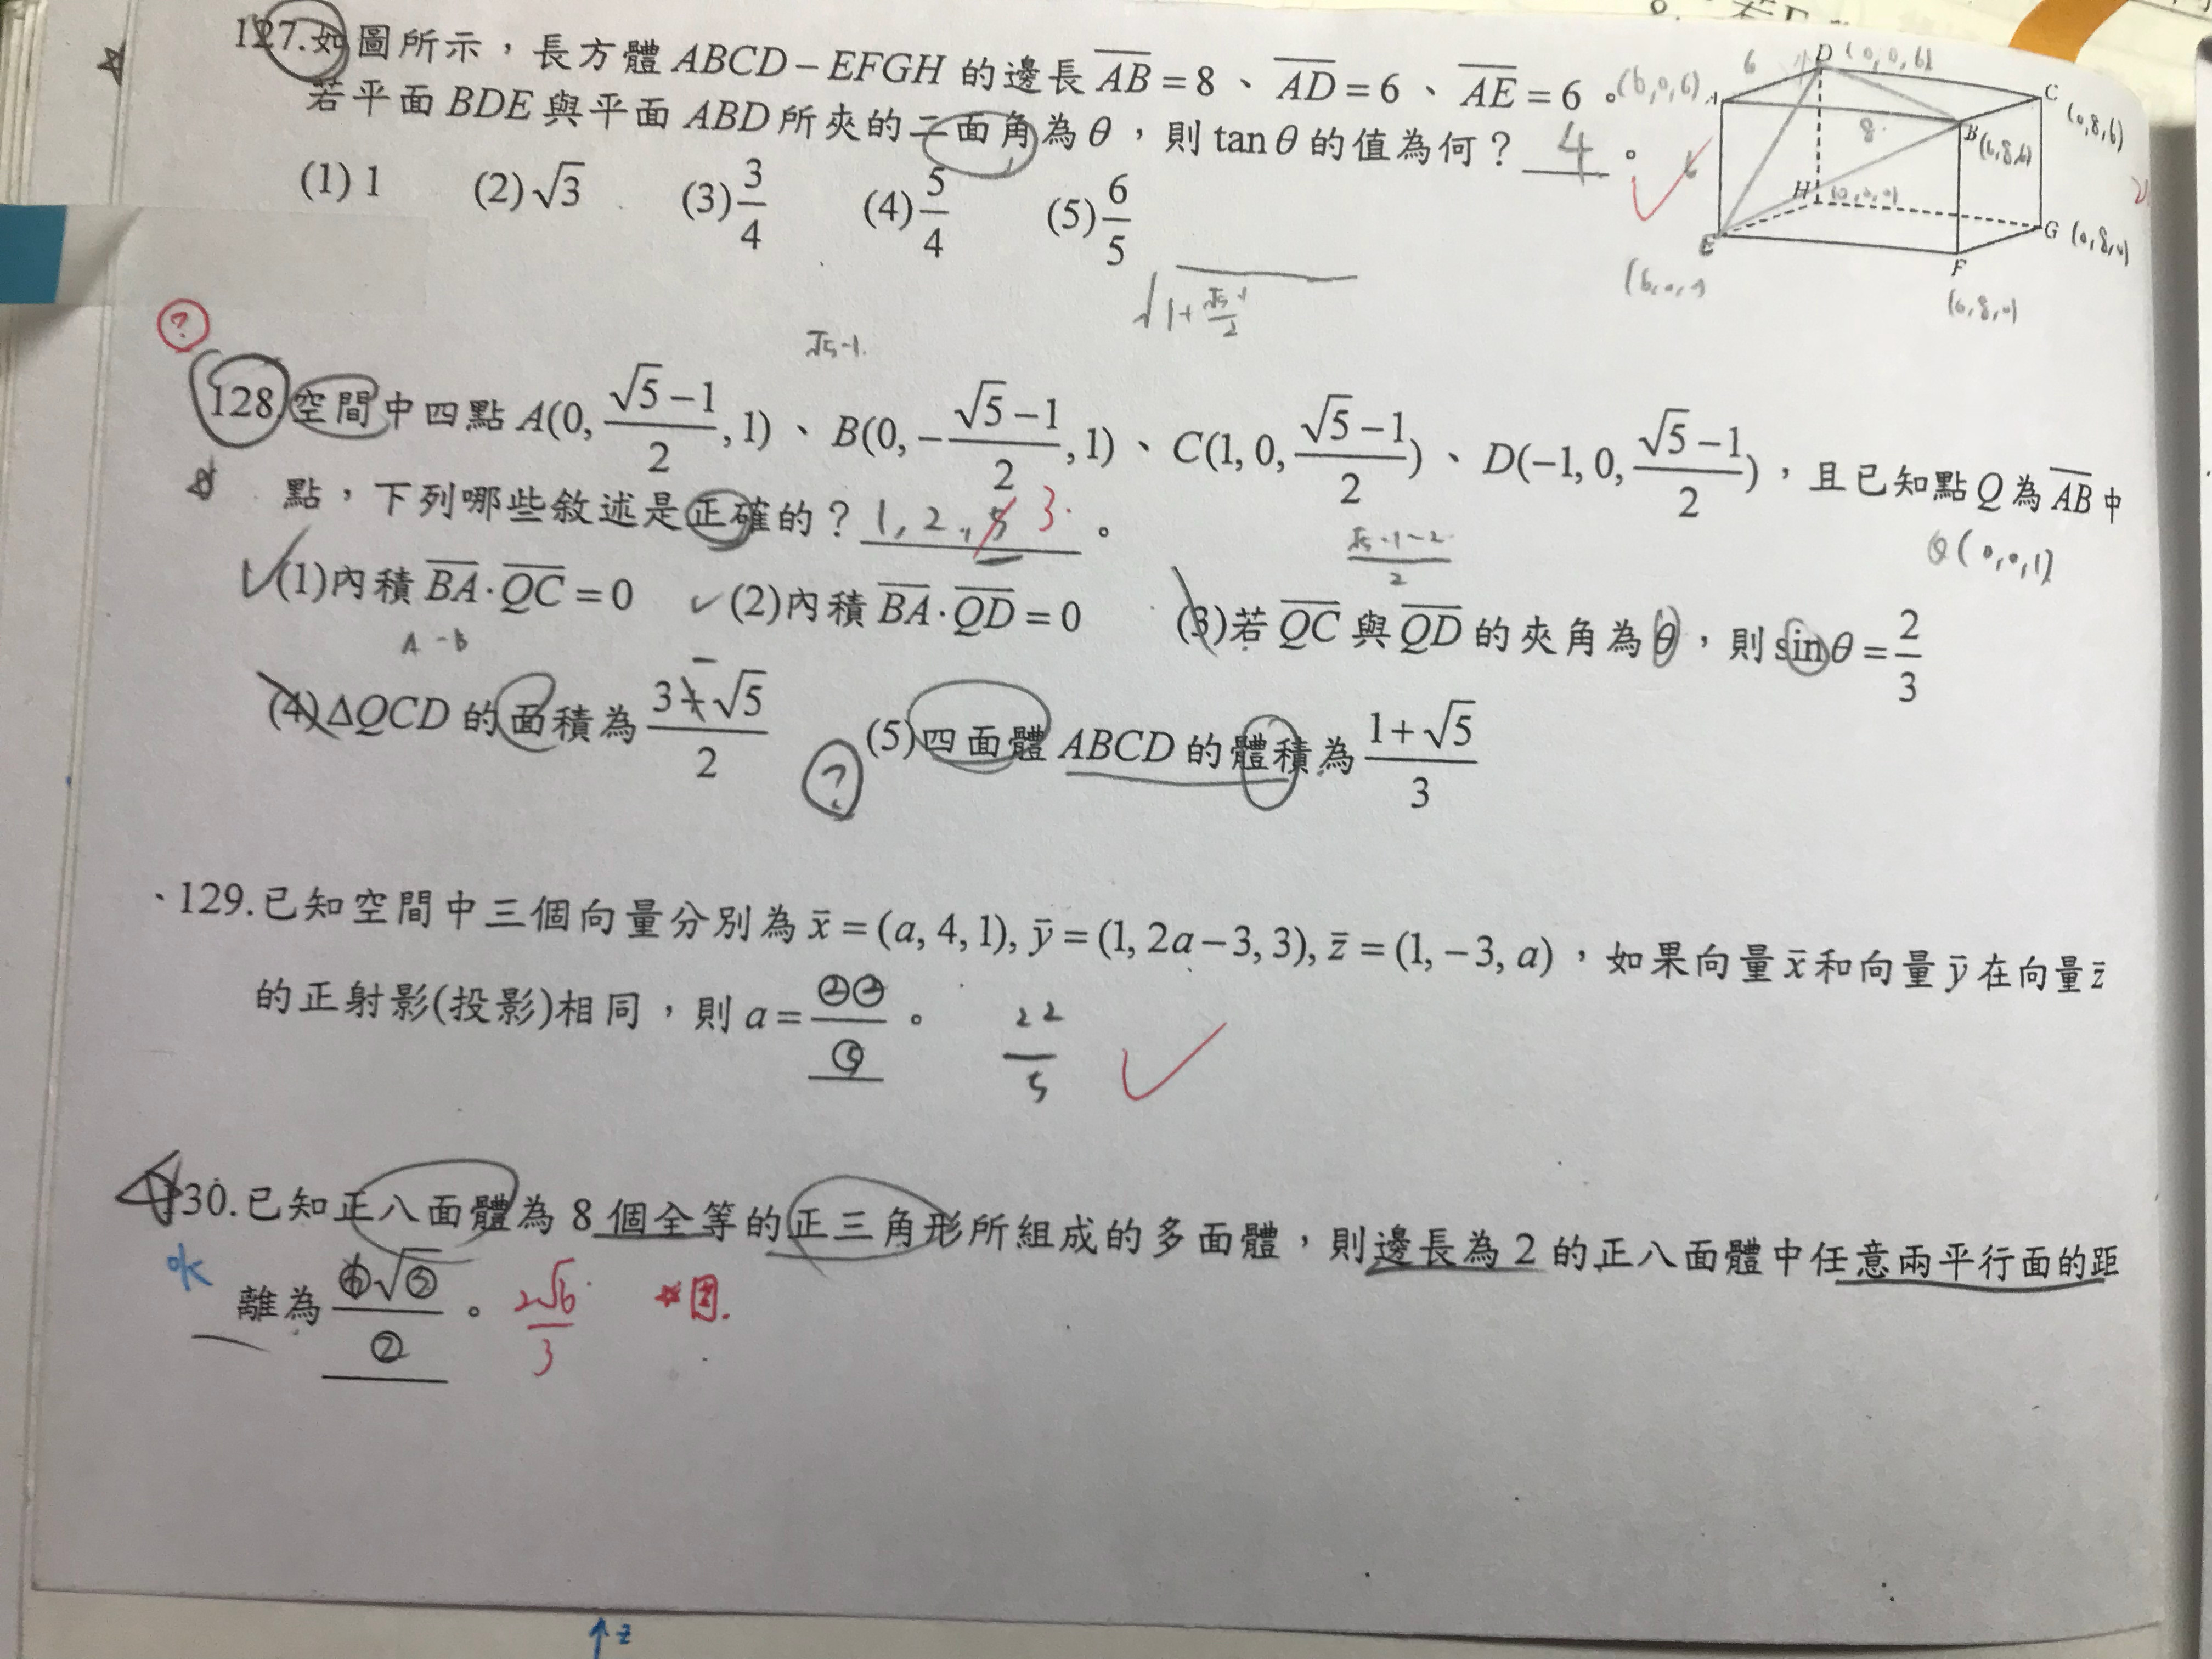 127.如圖所示，長方體 ABCD－EFGH 的邊長 \overline{AB}=8、\overline{AD}=6、\overline{AE}=6。
若平面 BDE 與平面 ABD 所夾的二面角為 θ，則 tanθ 的值為何？ 4 。
(1) 1 (2) √3 (3) 3/4 (4) 5/4 (5) 6/5
A (6,0,6)
D (0,0,6)
C (0,8,6)
B (6,8,6)
H
E
G (0,8,0)
F (6,8,0)
6
8
6
√(1+(√5-1)/2)
?
√5-1
128.空間中四點 A(0, (√5-1)/2, 1)、B(0, -(√5-1)/2, 1)、C(1, 0, (√5-1)/2)、D(-1, 0, (√5-1)/2)，且已知點 Q 為 \overline{AB} 中
點，下列哪些敘述是正確的？ 1, 2, 5 3 。
Q(0,0,1)
(√5-1-2)/2
(1)內積 \overline{BA}·\overline{QC}=0 (2)內積 \overline{BA}·\overline{QD}=0 (3)若 \overline{QC} 與 \overline{QD} 的夾角為 θ，則 sinθ=2/3
A-B
(4)ΔQCD 的面積為 (3+√5)/2 (5)四面體 ABCD 的體積為 (1+√5)/3
-
?
129.已知空間中三個向量分別為 x̄=(a, 4, 1), ȳ=(1, 2a-3, 3), z̄=(1, -3, a)，如果向量 x̄ 和向量 ȳ 在向量 z̄
的正射影(投影)相同，則 a=㉒/⑤。 22/5
130.已知正八面體為 8 個全等的正三角形所組成的多面體，則邊長為 2 的正八面體中任意兩平行面的距
離為 。 2√6/3
z